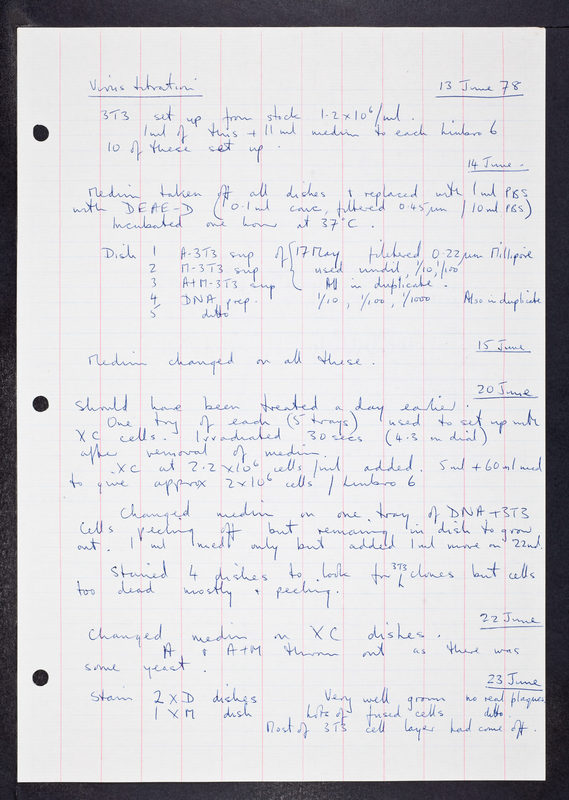 Virus titration 13 June 78
3T3 set up from stock 1.2 x 10⁶/ml.
1 ml of this + 11 ml medium to each Linbro 6
10 of these set up.
14 June.
Medium taken off all dishes & replaced with 1 ml PBS
with DEAE-D (0.1 ml conc, filtered 0.45 µm / 10 ml PBS)
Incubated one hour at 37°C.
Dish 1 A-3T3 sup of 17 May filtered 0.22 µm Millipore
2 M-3T3 sup used undil, 1/10, 1/100
3 A+M-3T3 sup All in duplicate.
4 DNA prep. 1/10, 1/100, 1/1000 Also in duplicate
5 ditto
15 June
Medium changed on all these.
20 June
Should have been treated a day earlier.
One tray of each (5 trays) used to set up with
XC cells. Irradiated 30 secs (4.3 on dial)
after removal of medium.
XC at 2.2 x 10⁶ cells/ml added. 5 ml + 60 ml med
to give approx 2 x 10⁶ cells / Linbro 6
Changed medium on one tray of DNA + 3T3
Cells peeling off but remaining in dish to grow
out. 1 ml med only but added 1 ml more on 22nd.
Stained 4 dishes to look for 3T3 clones but cells
too dead mostly & peeling.
22 June
Changed medium on XC dishes.
A & A+M thrown out as there was
some yeast.
23 June
Stain 2 x D dishes Very well grown no real plaques
1 x M dish Lots of fused cells ditto.
Most of 3T3 cell layer had come off.